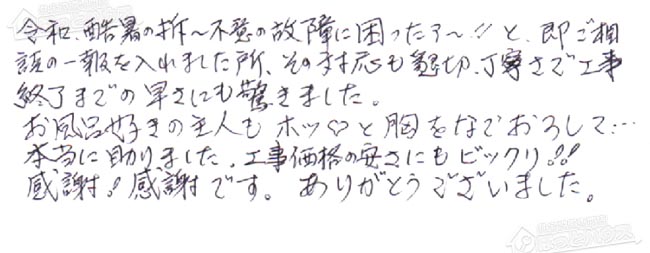 今和、酷暑の折～不意の故障に困ったァ～!!と、即ご相
談の一報を入れました所、その対応も懇切、丁寧さで工事
終了までの早さにも驚きました。
お風呂好きの主人もホッ♡と胸をなでおろして…
本当に助りました。工事価格の安さにもビックリ!!
感謝!感謝です。ありがとうございました。